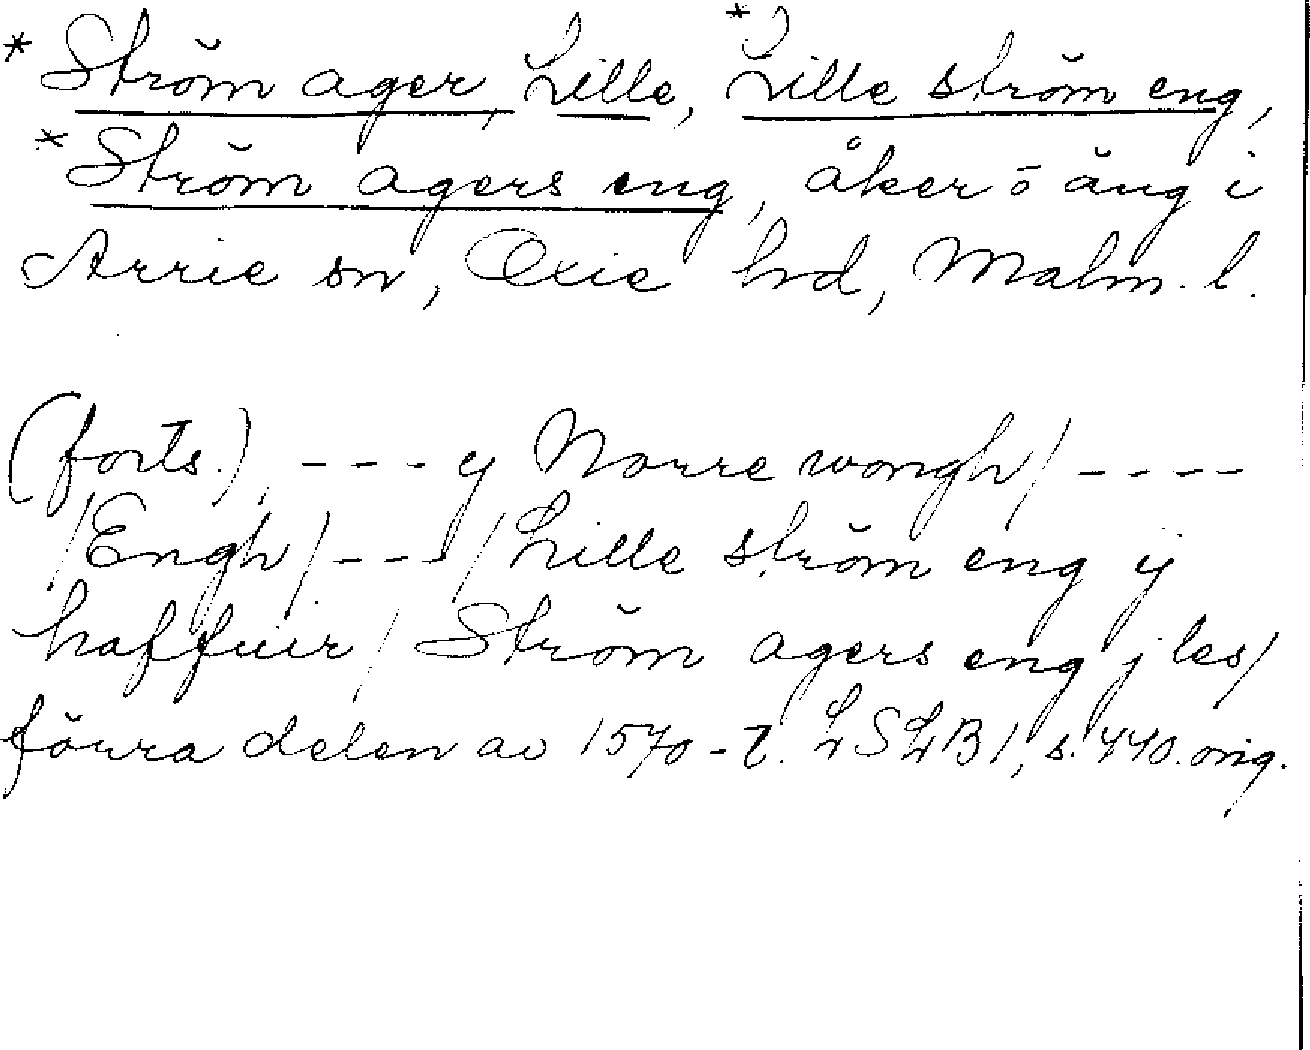 *Ström ager, Lille, *Lille ström eng,
*Ström agers eng, åker o äng i
Arrie sn, Oxie hd, Malm. l.
(forts.), --- y Norre wongh/ ----
/Engh/ --- / Lille ström eng ij
haffuir/ Ström agers eng j les/
förra delen av 1570-t. LSLB1, s. 440. orig.